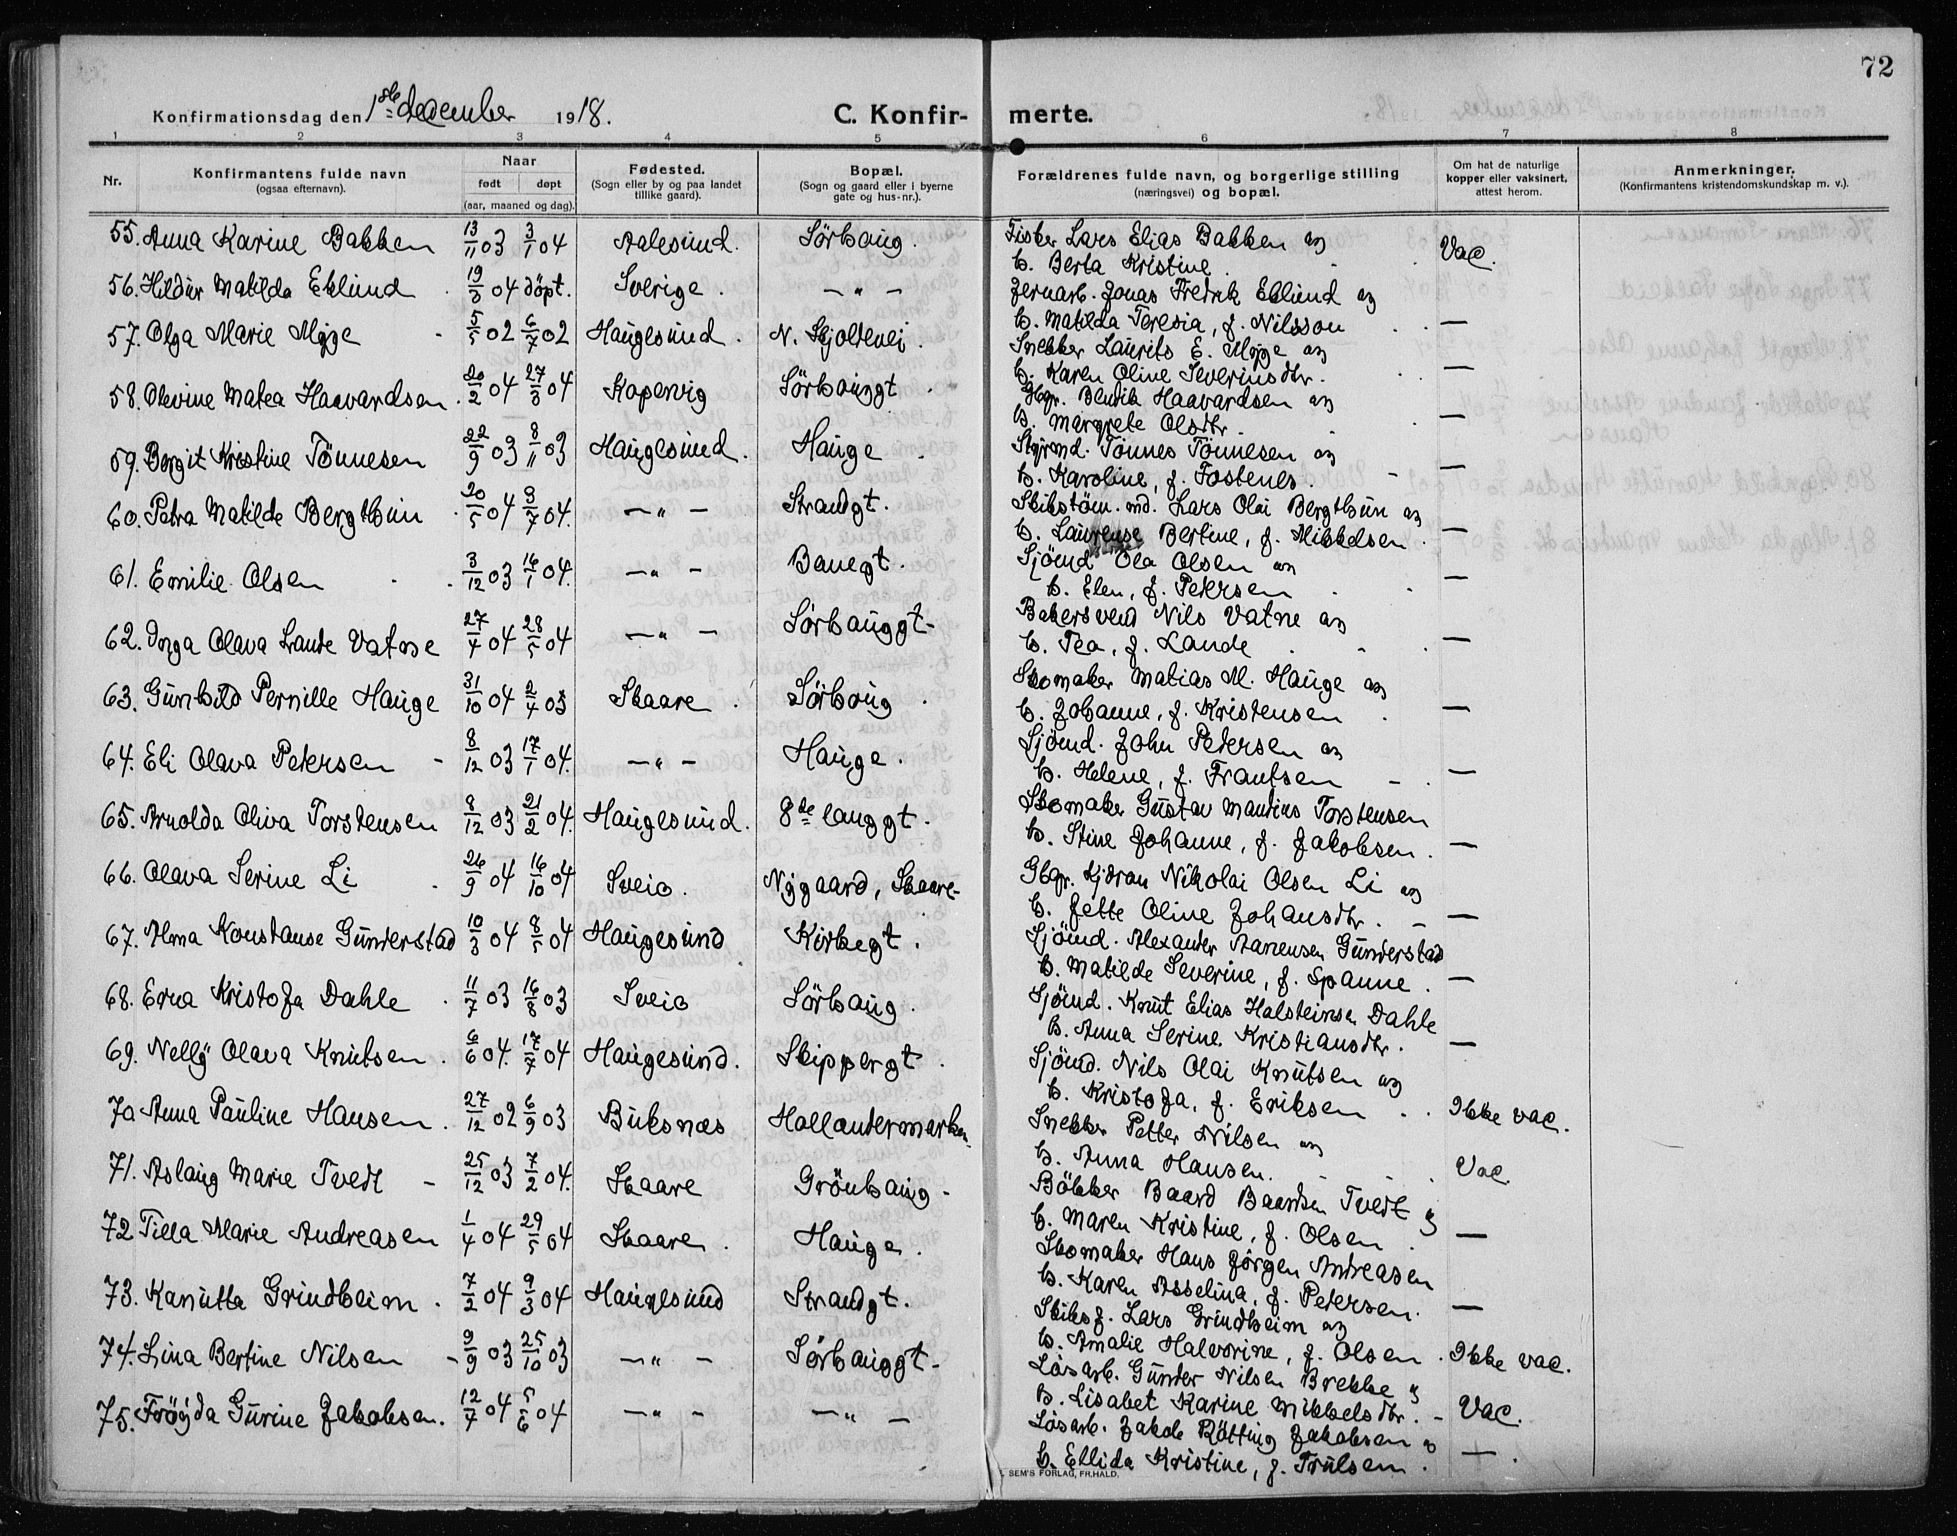 72
Konfirmationsdag den 1ste december 1918.
C. Konfirmerte.
1 2 3 4 5 6 7 8
Nr. Konfirmantens fulde navn (ogsaa efternavn). Naar født døpt (aar, maaned og dag). Fødested. (Sogn eller by og paa landet tillike gaard). Bopæl. (Sogn og gaard eller i byerne gate og hus-nr.). Forældrenes fulde navn, og borgerlige stilling (næringsvei) og bopæl. Om hat de naturlige kopper eller vaksinert, attest herom. Anmerkninger. (Konfirmantens kristendomskundskap m. v.).
55. Anna Karine Bakken 13/11 03 3/1 04 Aalesund. Sörhaug. Fisker Lars Elias Bakken og
h. Berta Kristine. Vac.
56. Hildur Matilda Eklund 19/3 04 döpt. Sverige. — " — Jernarb. Jonas Fredrik Eklund og
h. Matilda Teresia, f. Nilsson —
57. Olga Marie Myge 5/5 02 6/7 02 Haugesund. N. Skjoldevei. Snekker Laurits E. Myge og
h. Karen Oline Severinsdtr. —
58. Olevine Matea Haavardsen 20/2 04 27/3 04 Kopervig Sörhauggt. Gbgr. Blendik Haavardsen og
h. Margrete Olsdtr. —
59. Borgit Kristine Tönnesen 22/9 03 8/11 03 Haugesund. Hauge. Styrmd. Tönnes Tönnesen og
h. Karoline, f. Fostenes —
60. Petra Matilde Bergthun 20/5 04 3/7 04. — " — Strandgt. Skibstöm.md. Lars Olai Bergthun og
h. Laurense Bertine, f. Mikkelsen. —
61. Emilie Olsen 3/12 03 16/1 04. — " — Banegt. Sjömd Ola Olsen og
h. Elen, f. Petersen —
62. Inga Olava Lande Vatne 27/4 04 28/5 04 — " — Sörhauggt. Bakersvend Nils Vatne og
h. Tea, f. Lande —
63. Gunhild Pernille Hauge 31/10 04 2/4 05 Skaare Sörhaug. Skomaker Matias M. Hauge og
h. Johanne, f. Kristensen —
64. Eli Olava Petersen 8/12 03 17/1 04. — " — Hauge. Sjömd. John Petersen og
h. Helene, f. Frantsen —
65. Arnolda Oliva Torstensen 8/12 03 21/2 04. Haugesund. 8de langgt. Skomaker Gustav Mandius Torstensen
h. Stine Johanne, f. Jakobsen. —
66. Olava Serine Li 26/9 04 16/10 04 Sveio. Nygaard, Skaare Gbgr. Sjöran Nikolai Olsen Li og
h. Jette Oline Johansdtr. —
67. Alma Konstanse Gunderstad 10/3 04 8/5 04 Haugesund Kirkegt. Sjömd. Alexander Aanensen Gunderstad
h. Matilde Severine, f. Spanne. —
68. Erna Kristofa Dahle 11/7 03 16/8 03 Sveio Sörhaug. Sjömd. Knut Elias Halsteinsen Dahle
h. Anna Serine Kristiansdtr. —
69. Nelly Olava Knutsen. 6/6 04. 17/7 04 Haugesund. Skippergt. Sjömd. Nils Olai Knutsen og
h. Kristofa, f. Eriksen Ikke vac.
70 Anna Pauline Hansen 27/12 02 6/9 03 Buksnæs Hollendermarken Snekker Petter Nilsen og
h. Anna Hansen. Vac.
71. Aslaug Marie Tvedt 25/12 03 7/2 04. Skaare Grönhaug Bökker Baard Baardsen Tvedt og
h. Maren Kristine, f. Olsen —
72 Tilla Marie Andreasen 1/4 04 29/5 04 Skaare. Hauge. Skomaker Hans Jörgen Andreasen
h. Karen Asselina, f. Petersen. —
73. Kanutta Grindheim. 7/2 04 9/3 04 Haugesund Strandgt. Skibsf. Lars Grindheim og
h. Amalie Halvorine, f. Olsen. Ikke vac.
74. Lina Bertine Nilsen 9/9 03 25/10 03 — " — Sörhauggt. Lösarb. Gunder Nilsen Brekke og
h. Lisabet Karine Mikkelsdtr. Vac.
75. Fröyda Gurine Jakobsen. 12/4 04 5/6 04 — " — — " — Lösarb. Jakob Rötting Jakobsen og
h. Ellida Kristine, f. Trulsen. —
SEM'S FORLAG, FR.HALD.